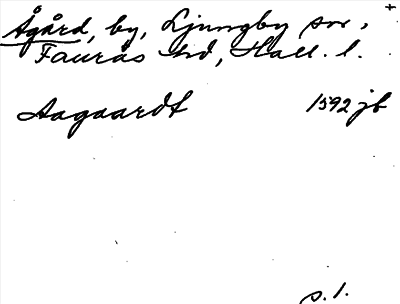 Ågård, by, Ljungby sn,
Faurås hd, Hall. l.
Aagaardt 1592 jb
s. 1.